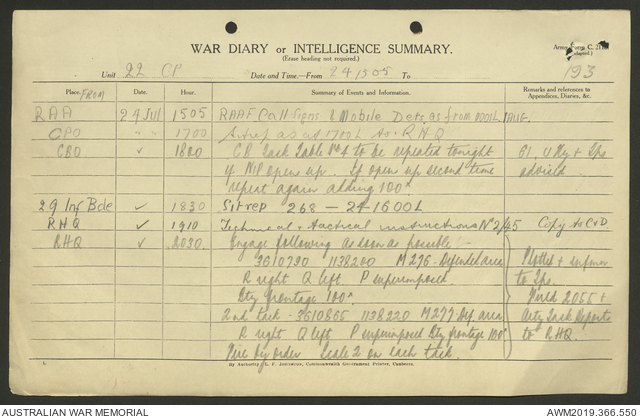 WAR DIARY or INTELLIGENCE SUMMARY.
(Erase heading not required.)
Army Form C. 2118.
(Adapted.)
Unit 22 CP Date and Time.—From 241505 To 193
Place. FROM Date. Hour. Summary of Events and Information. Remarks and references to Appendices, Diaries, &c.
RAA 24 Jul 1505 RAAF Call Signs & Mobile Dets as from 0001L 1 AUG.
CPO " " 1700 Sitrep as at 1700L to RHQ
CBO ✓ 1800 CB Task Table No 4 to be repeated tonight 61. U Rg + Sps
if NP opens up. If opens up second time advised
repeat again adding 100x
29 Inf Bde ✓ 1830 Sitrep 268 - 24-1600L
RHQ ✓ 1910 Technical & tactical instructions No 2/45 Copy to C & D
RHQ ✓ 2030 Engage following as soon as possible :-
3610790 1138200 M276 - Defended area Plotted +
R right Q left P superimposed to Sps.
Bty frontage 100x. Fired 2055 +
2nd task - 3610865 1138220 M277 Def area Arty Task Reports
R right Q left P superimposed Bty frontage 100x to RHQ.
Fire by order Scale 2 on each task.
By Authority: L. F. Johnston, Commonwealth Government Printer, Canberra.
AUSTRALIAN WAR MEMORIAL AWM2019.366.550